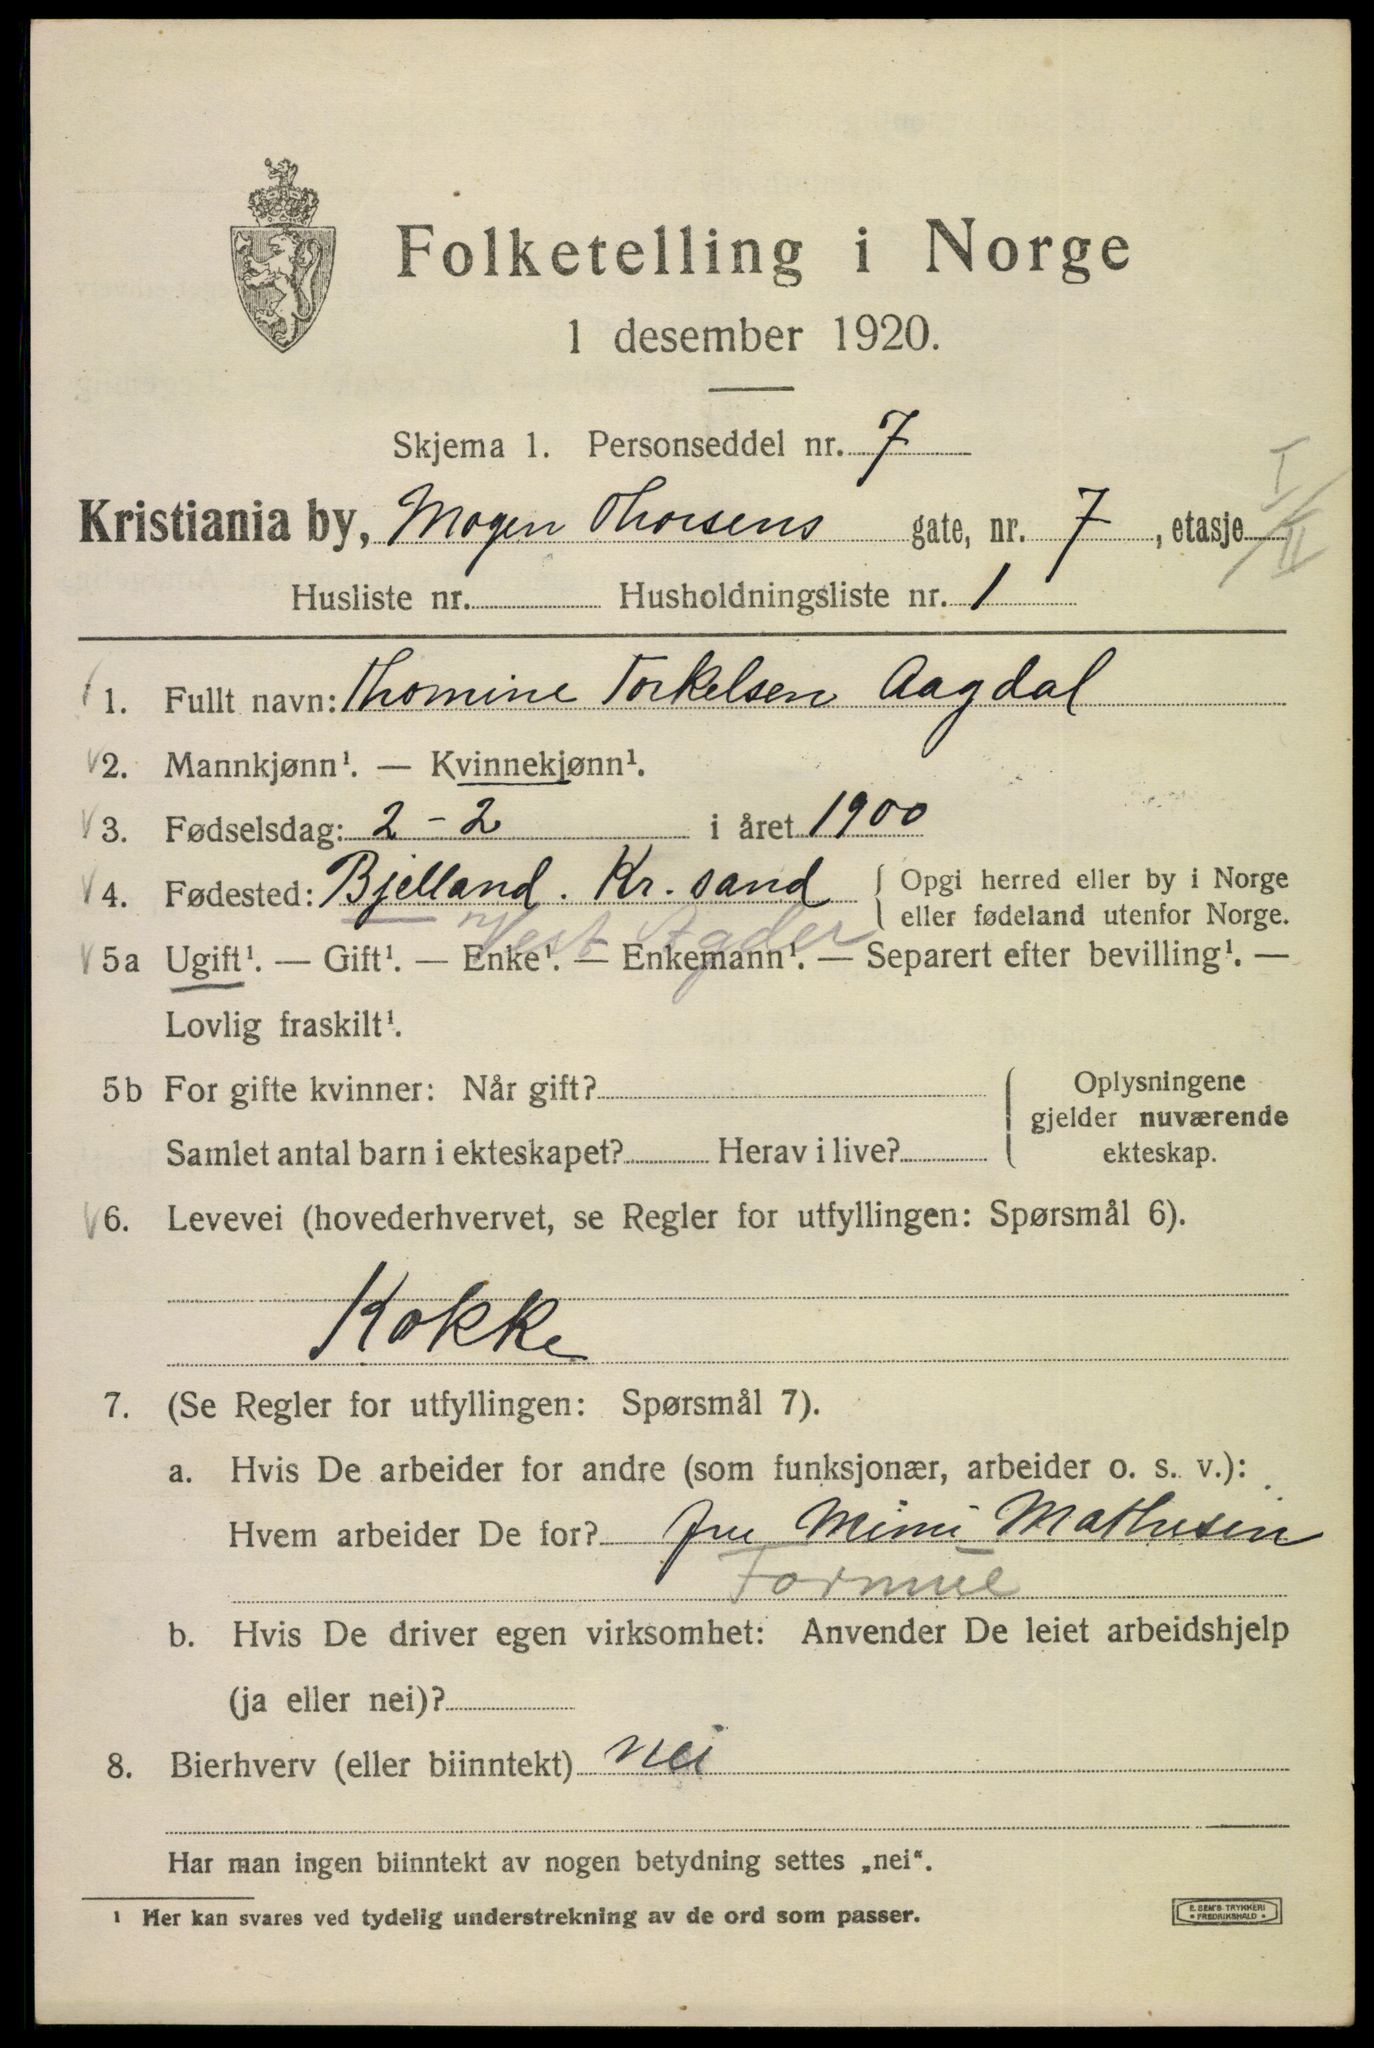 Folketelling i Norge
1 desember 1920.
Skjema 1. Personseddel nr. 7
Kristiania by, Mogen Thorsens gate, nr. 7, etasje I/II
Husliste nr. Husholdningsliste nr. 1
1. Fullt navn: Thomine Torkelsen Aagdal
2. Mannkjønn¹. — Kvinnekjønn¹.
3. Fødselsdag: 2 - 2 i året 1900
4. Fødested: Bjelland. Kr. sand Opgi herred eller by i Norge
eller fødeland utenfor Norge.
Vest Agder
5a Ugift¹. — Gift¹. — Enke¹. — Enkemann¹. — Separert efter bevilling¹. —
Lovlig fraskilt¹.
5b For gifte kvinner: Når gift? Oplysningene
gjelder nuværende
Samlet antal barn i ekteskapet? Herav i live? ekteskap.
6. Levevei (hovederhvervet, se Regler for utfyllingen: Spørsmål 6).
Kokke
7. (Se Regler for utfyllingen: Spørsmål 7).
a. Hvis De arbeider for andre (som funksjonær, arbeider o. s. v.):
Hvem arbeider De for? fru Mimi Mathiesen
Formue
b. Hvis De driver egen virksomhet: Anvender De leiet arbeidshjelp
(ja eller nei)?
8. Bierhverv (eller biinntekt) nei
Har man ingen biinntekt av nogen betydning settes „nei“.
¹ Her kan svares ved tydelig understrekning av de ord som passer.
E. SEM'S TRYKKERI
• FREDRIKSHALD •